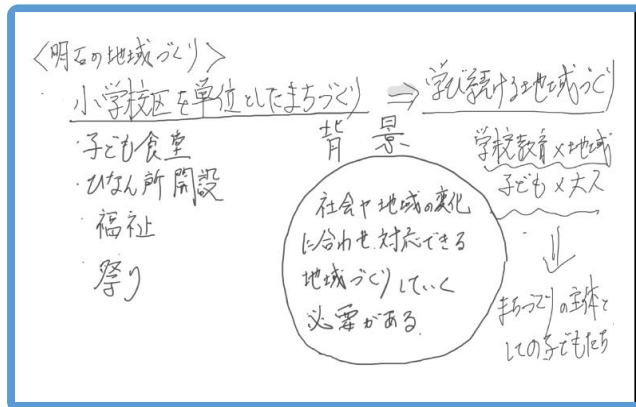 〈明石の地域づくり〉
小学校区を単位としたまちづくり ⇒ 学び続ける地域づくり
・子ども食堂
・ひなん所開設
・福祉
・祭り
背景
社会や地域の変化
に合わせ、対応できる
地域づくりしていく
必要がある。
学校教育×地域
子ども×大人
⇓
まちづくりの主体と
しての子どもたち